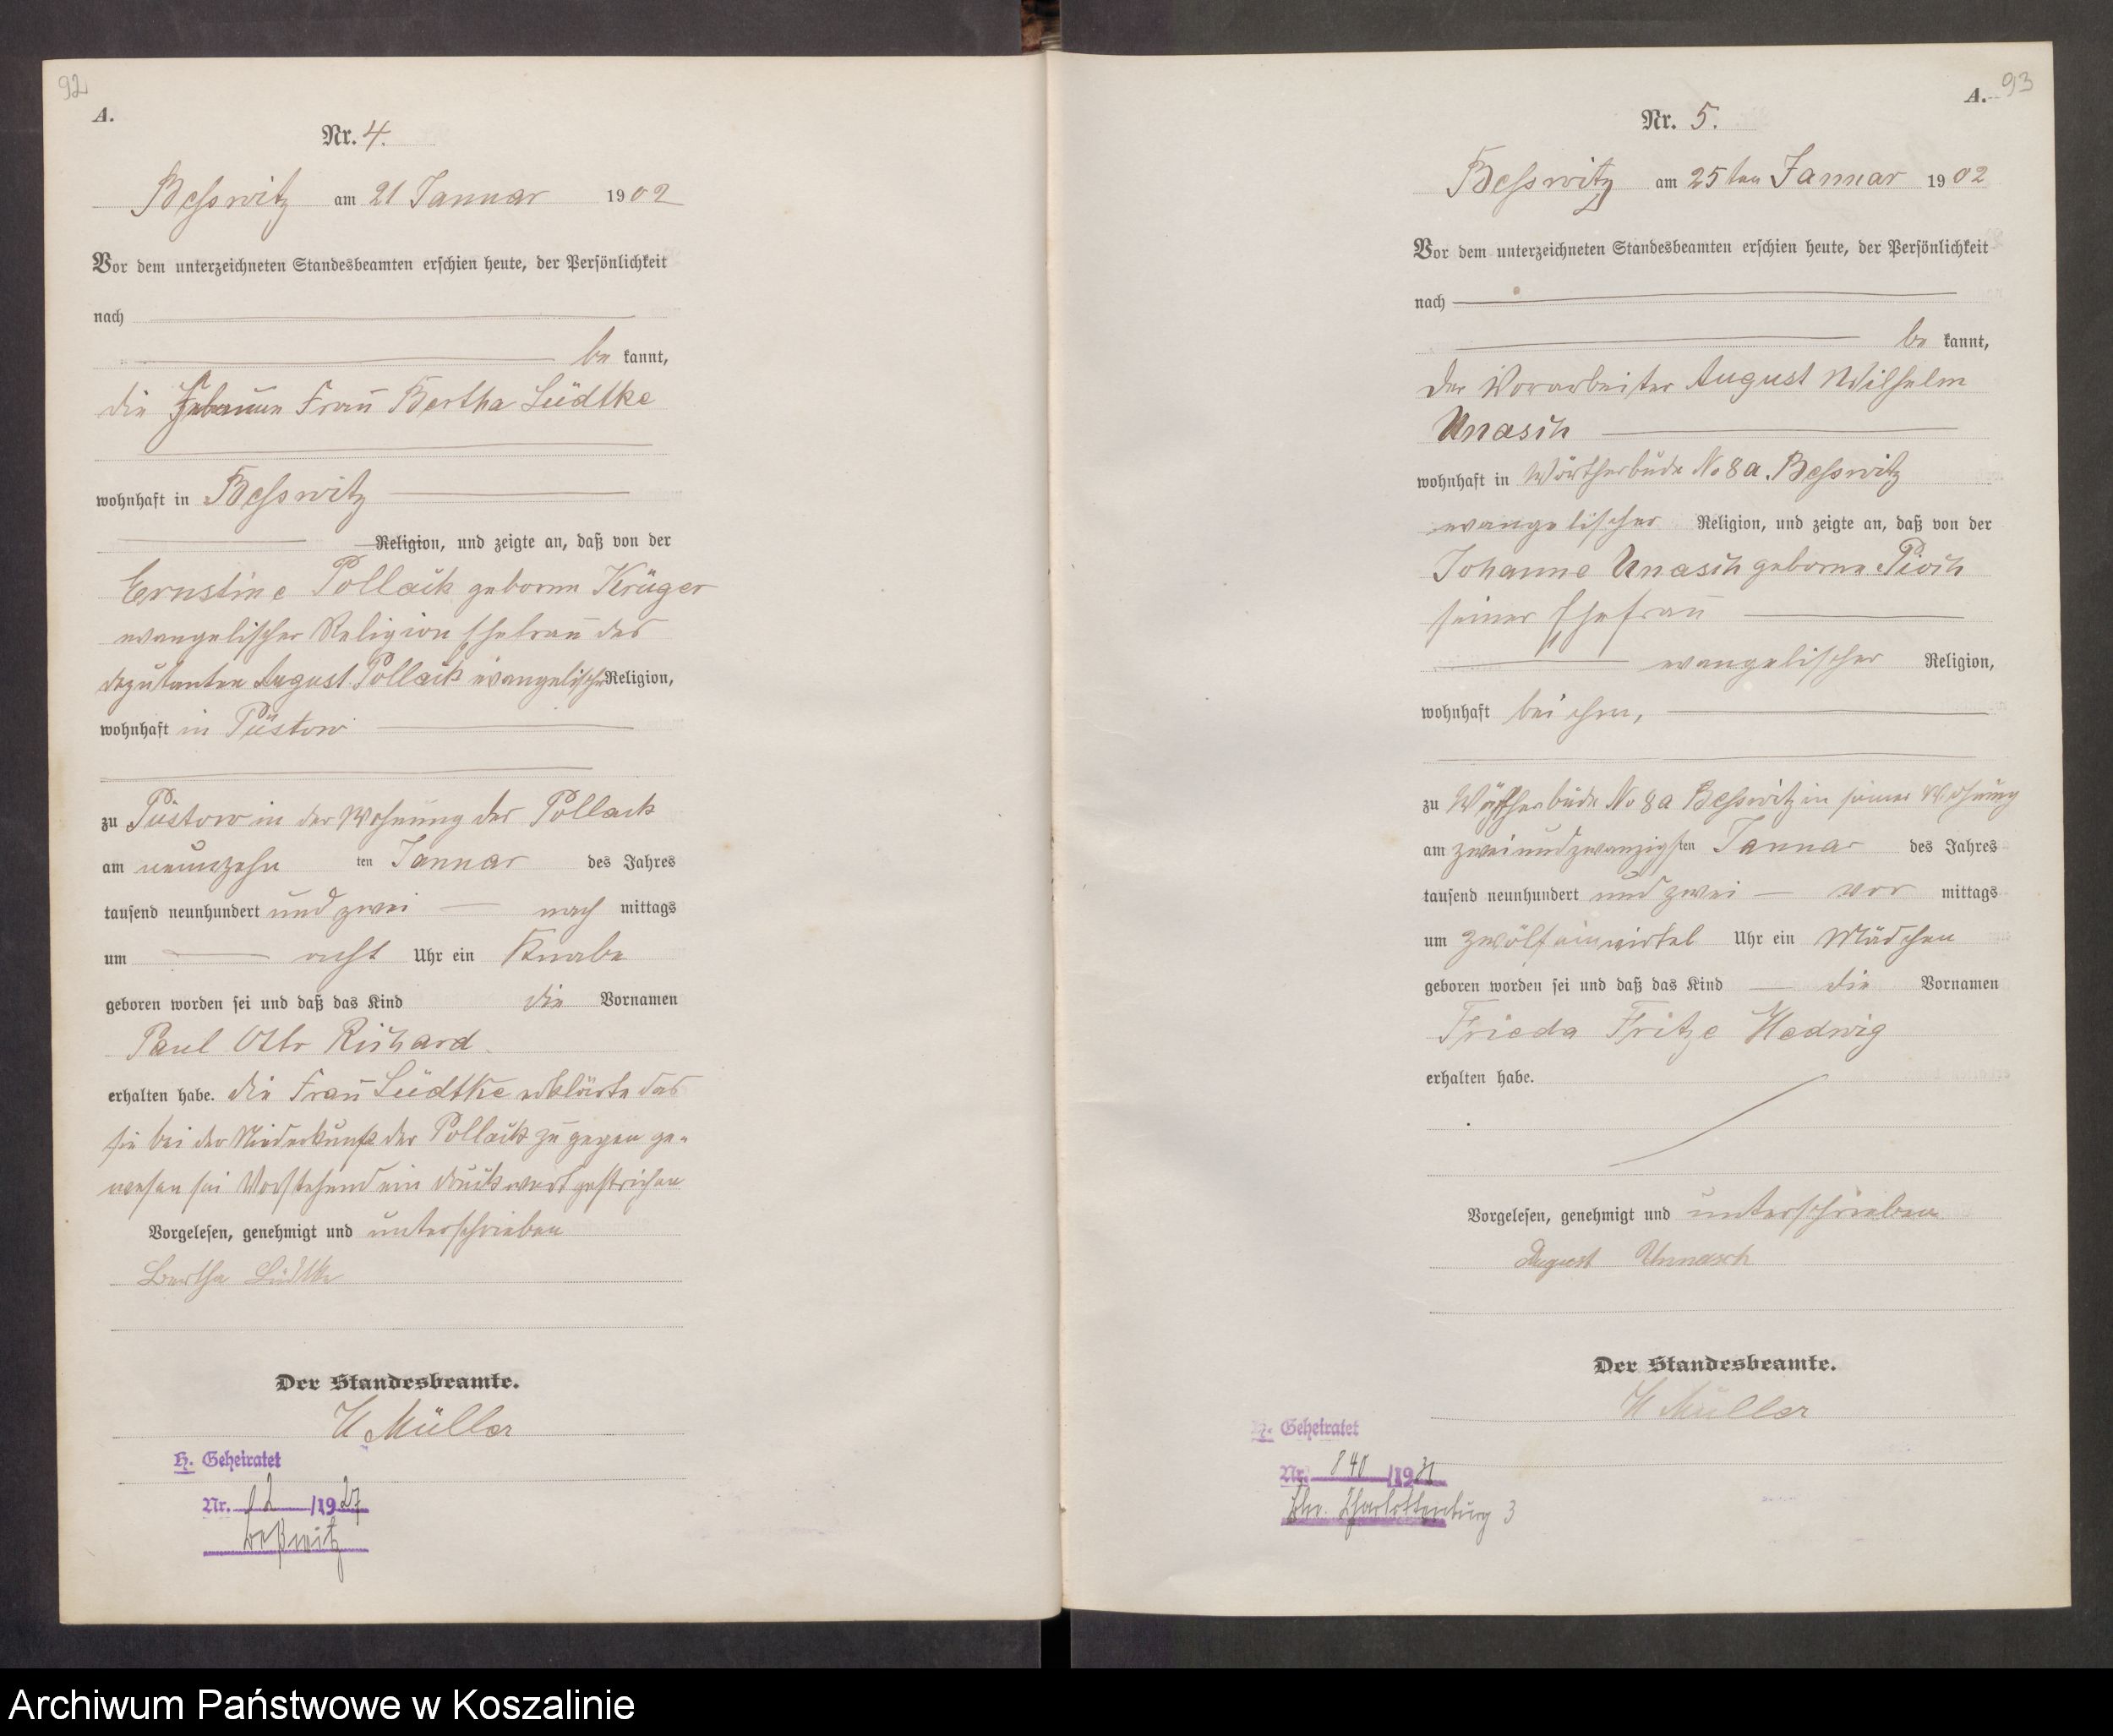 92
A.
Nr. 4.
Besswitz am 21 Januar 1902
Vor dem unterzeichneten Standesbeamten erschien heute, der Persönlichkeit
nach
be kannt,
die Hebamme Frau Bertha Lüdtke
wohnhaft in Besswitz
Religion, und zeigte an, daß von der
Ernstine Pollack geborne Krüger
evangelischer Religion Ehefrau des
Deputanten August Pollack evangelischer Religion,
wohnhaft in Püstow
zu Püstow in der Wohnung des Pollack
am neunzehn ten Januar des Jahres
tausend neunhundert und zwei nach mittags
um acht Uhr ein Knabe
geboren worden sei und daß das Kind die Vornamen
Paul Otto Richard
erhalten habe. die Frau Lüdtke erklärte das
sie bei der Niederkunft der Pollack zu gegen ge-
wesen sei Vorstehend ein Druckwort gestrichen
Vorgelesen, genehmigt und unterschrieben
Bertha Lüdtke
Der Standesbeamte.
H Müller
H. Geheiratet
Nr. 12 /1927
Beßwitz
A. 93
Nr. 5.
Besswitz am 25ten Januar 1902
Vor dem unterzeichneten Standesbeamten erschien heute, der Persönlichkeit
nach
be kannt,
der Vorarbeiter August Wilhelm
Unasch
wohnhaft in Wärterbude No 8a. Besswitz
evangelischer Religion, und zeigte an, daß von der
Johanne Unasch geborne Pioch
seiner Ehefrau
evangelischer Religion,
wohnhaft bei ihm,
zu Wärterbude No 8a Besswitz in seiner Wohnung
am zweiundzwanzigsten Januar des Jahres
tausend neunhundert und zwei vor mittags
um zwölf ein virtel Uhr ein Mädchen
geboren worden sei und daß das Kind die Vornamen
Frieda Fritze Hedwig
erhalten habe.
Vorgelesen, genehmigt und unterschrieben
August Unnasch
Der Standesbeamte.
H Müller
H. Geheiratet
Nr. 840 /1931
Bln. Charlottenburg 3
Archiwum Państwowe w Koszalinie